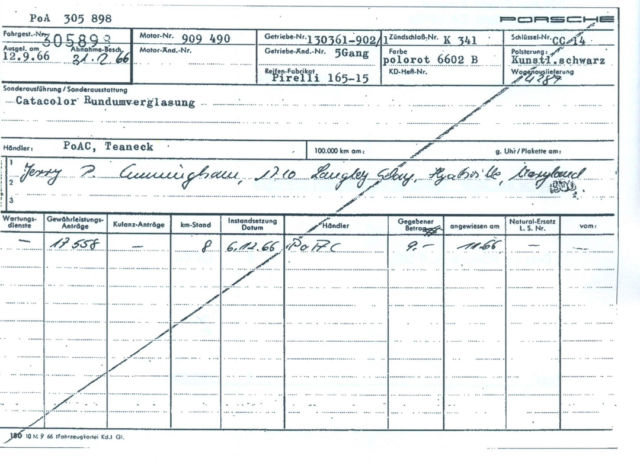 PoA 305 898
PORSCHE
Fahrgest.-Nr. 305898
Motor-Nr. 909 490
Getriebe-Nr. 130361-902/1
Zündschloß-Nr. K 341
Schlüssel-Nr. CC 14
Ausgel. am 12.9.66
Abnahme-Besch. 66
Motor-Änd.-Nr.
Getriebe-Änd.-Nr. 5Gang
Farbe polorot 6602 B
Polsterung: Kunstl.schwarz
Reifen-Fabrikat Pirelli 165-15
KD-Heft-Nr.
Wagenauslieferung
Sonderausführung / Sonderausstattung
Catacolor Rundumverglasung
Händler: PoAC, Teaneck
100.000 km am:
g. Uhr / Plakette am:
1 Jerry P. Cunningham, Langley Hyattsville, Maryland
2
3
Wartungs-dienste Gewährleistungs-Anträge Kulanz-Anträge km-Stand Instandsetzung Datum Händler Gegebener Betrag angewiesen am Natural-Ersatz L. S. Nr. vom:
— 17558 — 8 6.12.66 PoAC 9.- 11.66 — —
180 10 M 9 66 (Fahrzeugkartei Kd.) Gl.